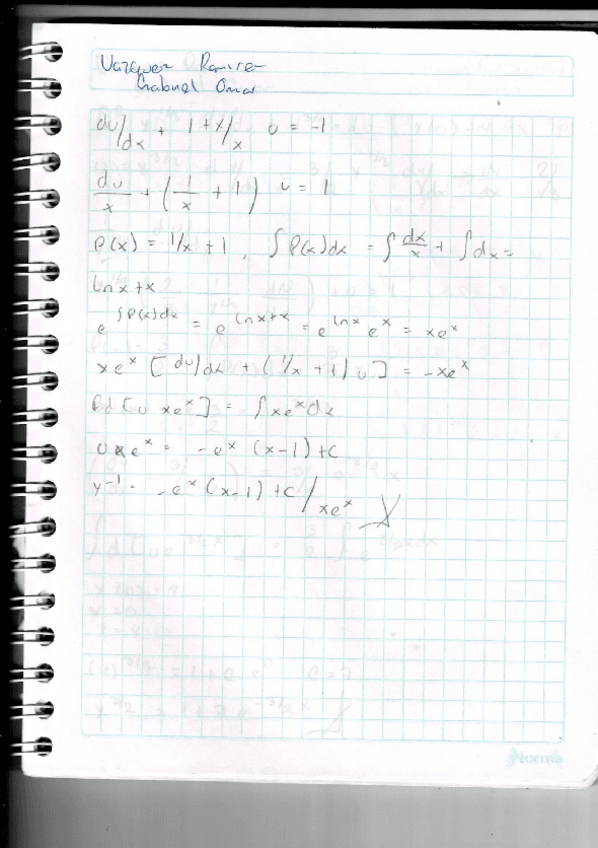 Vazquez Ramirez
Gabriel Omar
du/dx + 1+x/x u = -1
du/x + (1/x + 1) u = 1
P(x) = 1/x + 1, ∫P(x)dx = ∫dx/x + ∫dx =
ln x + x
e^∫P(x)dx = e^ln x+x = e^ln x e^x = xe^x
xe^x [du/dx + (1/x + 1) u] = -xe^x
∫d[u xe^x] = ∫xe^x dx
uxe^x = -e^x (x-1) + c
y^-1 = -e^x (x-1) + c / xe^x
Norma